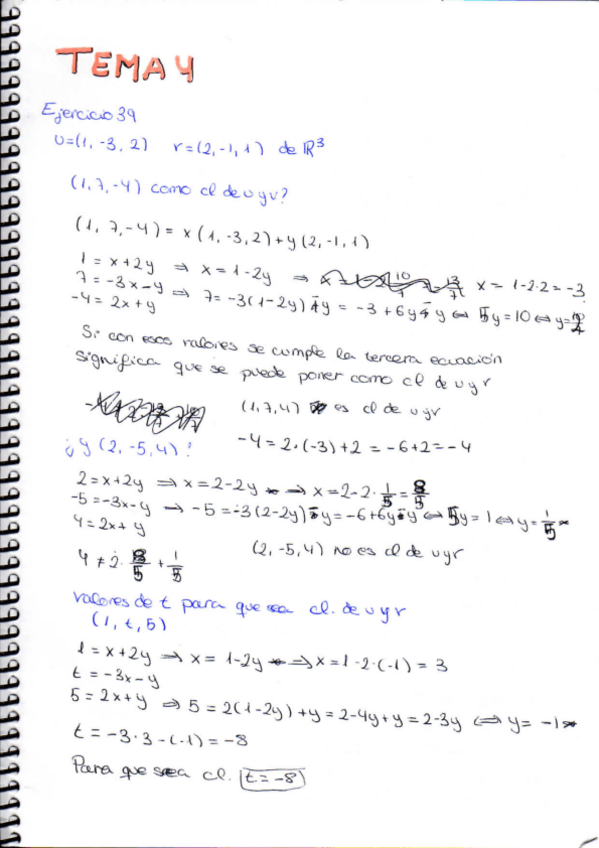 TEMA 4
Ejercicio 39
u=(1, -3, 2) r=(2, -1, 1) de ℝ³
(1, 7, -4) como cl de u y r?
(1, 7, -4) = x(1, -3, 2) + y(2, -1, 1)
1 = x+2y ⇒ x = 1-2y ⇒ x = 1-2·2 = -3
7 = -3x-y ⇒ 7 = -3(1-2y)-y = -3+6y-y ⇔ 5y = 10 ⇔ y=
-4 = 2x+y
Si con esos valores se cumple la tercera ecuación
significa que se puede poner como cl de u y r
(1, 7, 4) es cl de u y r
-4 = 2·(-3)+2 = -6+2 = -4
¿y (2, -5, 4)?
2 = x+2y ⇒ x = 2-2y ⇒ x = 2-2·1/5 = 8/5
-5 = -3x-y ⇒ -5 = -3(2-2y)-y = -6+6y-y ⇔ 5y = 1 ⇔ y = 1/5
4 = 2x+y
4 ≠ 2·8/5 + 1/5
(2, -5, 4) no es cl de u y r
valores de t para que sea cl. de u y r
(1, t, 5)
1 = x+2y ⇒ x = 1-2y ⇒ x = 1-2·(-1) = 3
t = -3x-y
5 = 2x+y ⇒ 5 = 2(1-2y)+y = 2-4y+y = 2-3y ⇔ y = -1
t = -3·3-(-1) = -8
Para que sea cl. t = -8